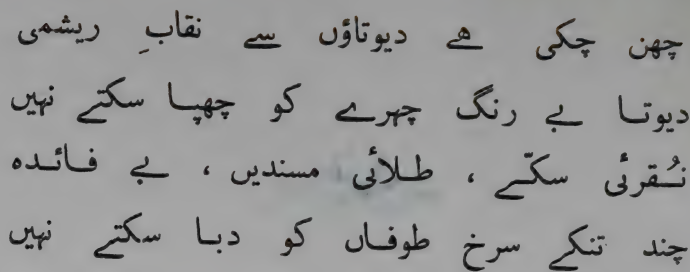 چھن چکی ھے دیوتاؤں سے نقابِ ریشمی
دیوتا بے رنگ چہرے کو چھپا سکتے نہیں
نُقرئی سکّے ، طلائی مسندیں ، بے فائدہ
چند تنکے سرخ طوفاں کو دبا سکتے نہیں